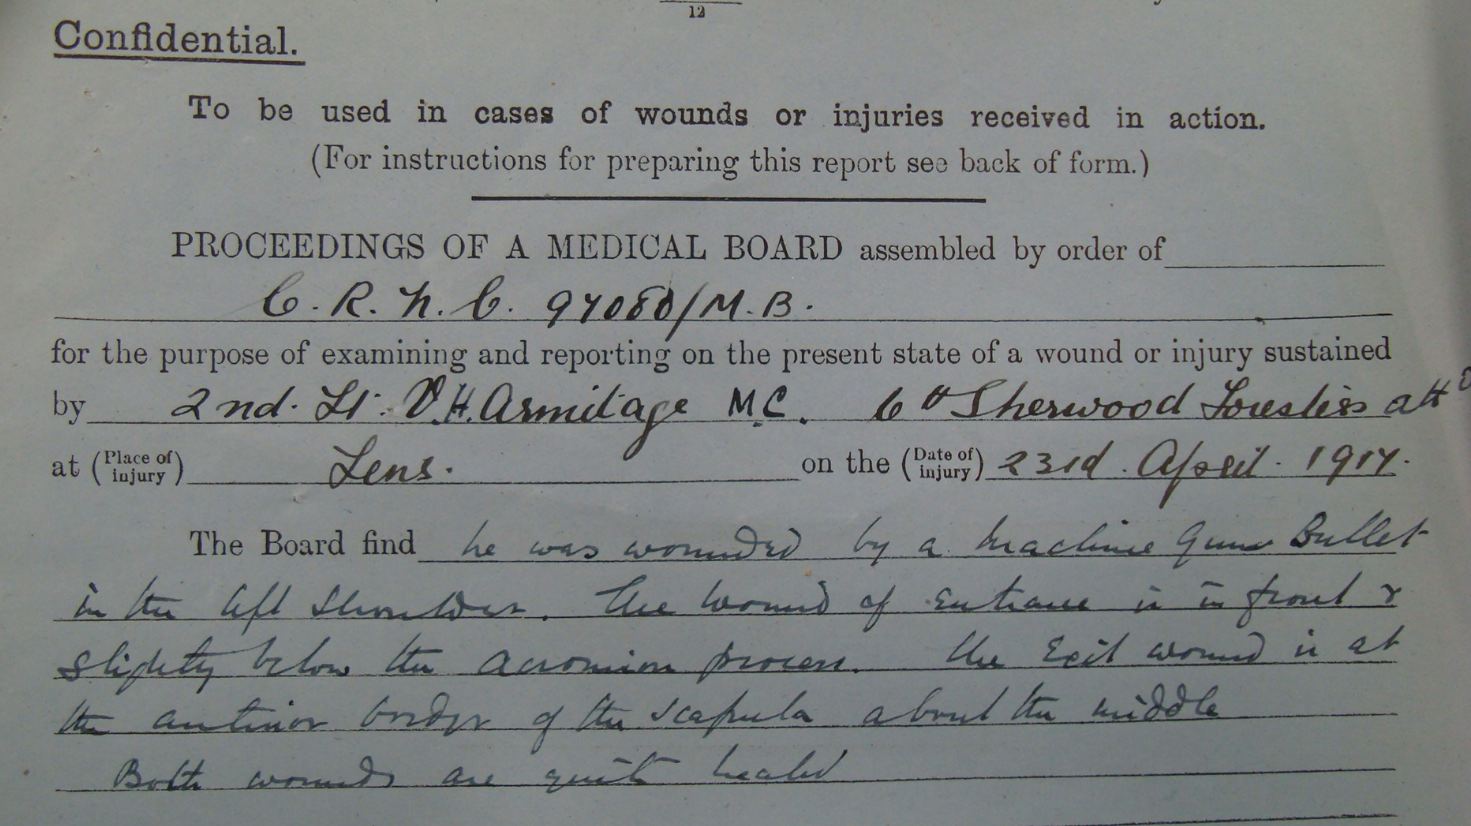 12
Confidential.
To be used in cases of wounds or injuries received in action.
(For instructions for preparing this report see back of form.)
PROCEEDINGS OF A MEDICAL BOARD assembled by order of
C. R. N. C. 97080/M.B.
for the purpose of examining and reporting on the present state of a wound or injury sustained
by 2nd. Lt. V.H. Armitage M.C. 6th Sherwood Foresters attd
at (Place of injury) Lens. on the (Date of injury) 23rd. April. 1917.
The Board find he was wounded by a Machine Gun Bullet
in the left shoulder. The wound of entrance is in front &
slightly below the acromion process. The Exit wound is at
the anterior border of the scapula about the middle
Both wounds are quite healed